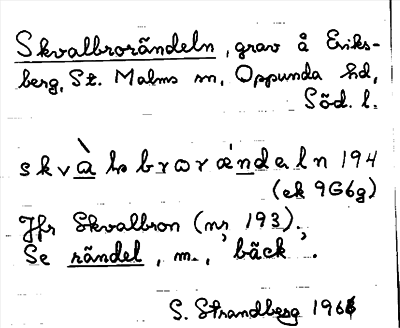 Skvalbrorändeln, grav å Eriks-
berg, St. Malms sn, Oppunda hd,
Söd. l.
skvàlbrorændeln 194
(ek 9G6g)
Jfr Skvalbron (nr 193).
Se rändel, m., 'bäck'.
S. Strandberg 1966